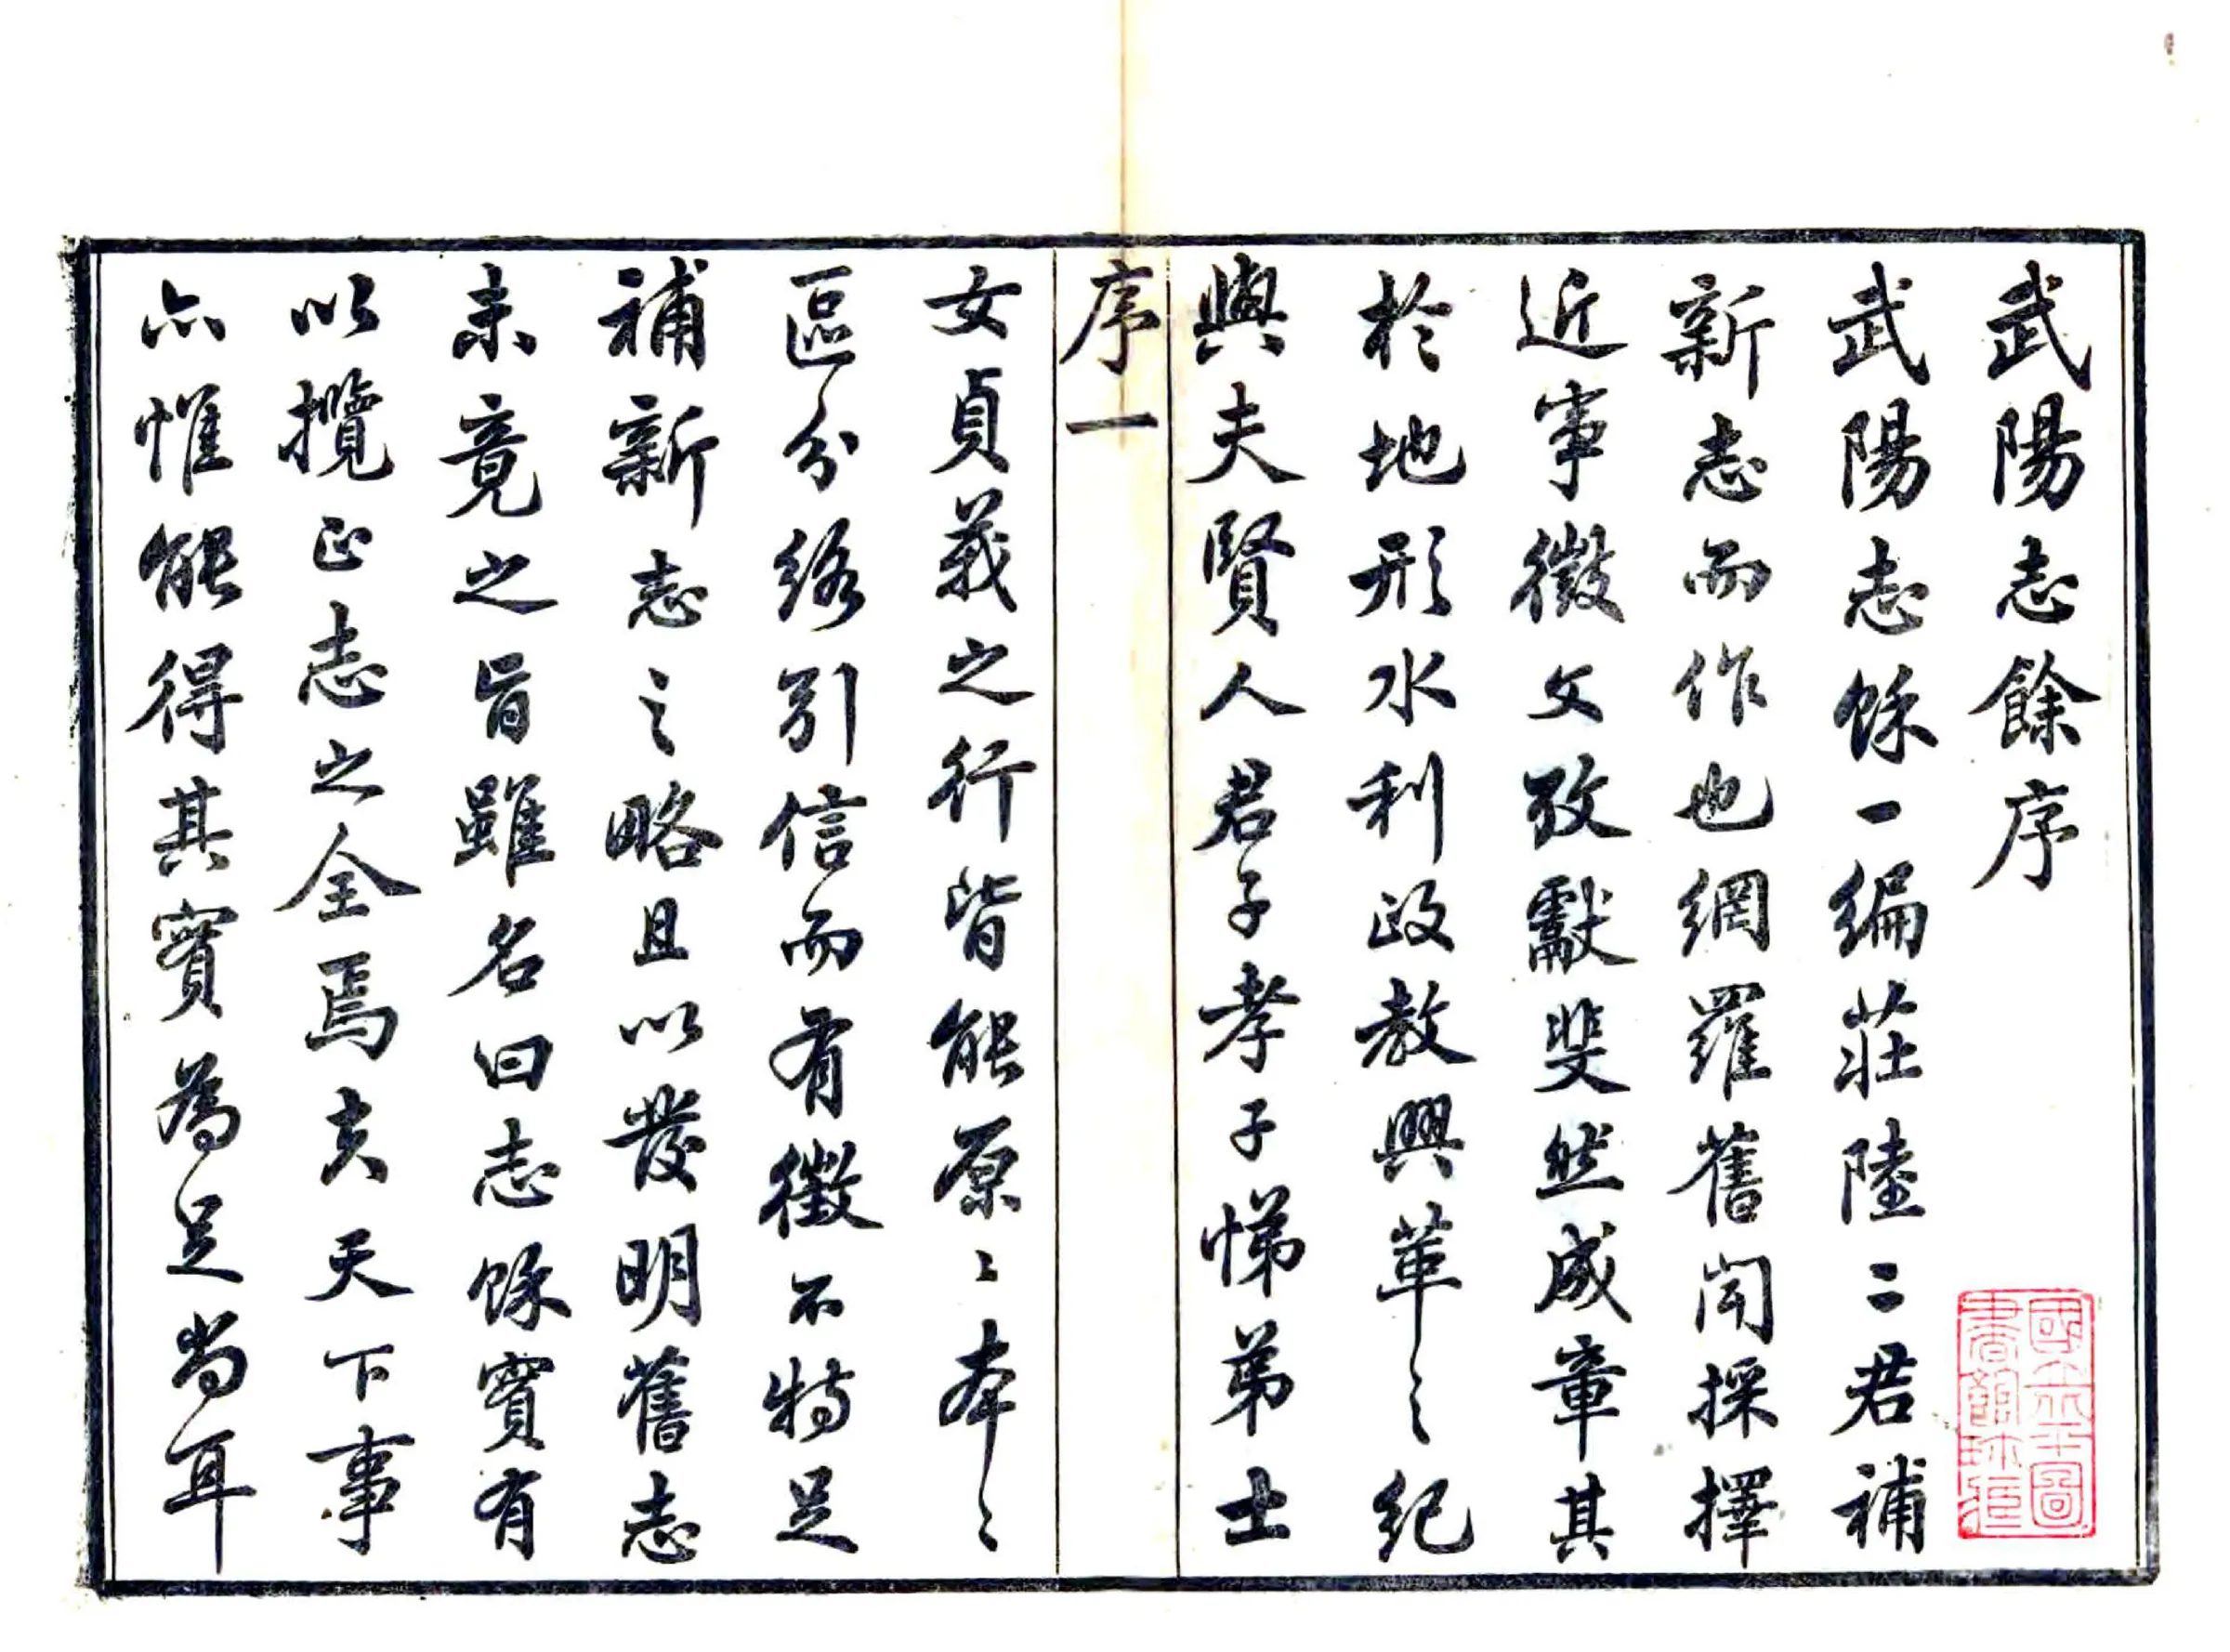 武陽志餘序
武陽志餘一編莊陸二君補
新志而作也網羅舊聞採擇
近事徵文攷獻斐然成章其
於地形水利政教興革之紀
與夫賢人君子孝子悌弟士
序一
女貞義之行皆能原〻本〻
區分引信而有徵不特足
補新志之略且以發明舊志
未竟之旨雖名曰志餘實有
以攬正志之全焉夫天下事
亦惟能得其實為足尚耳
國立北平圖
書館